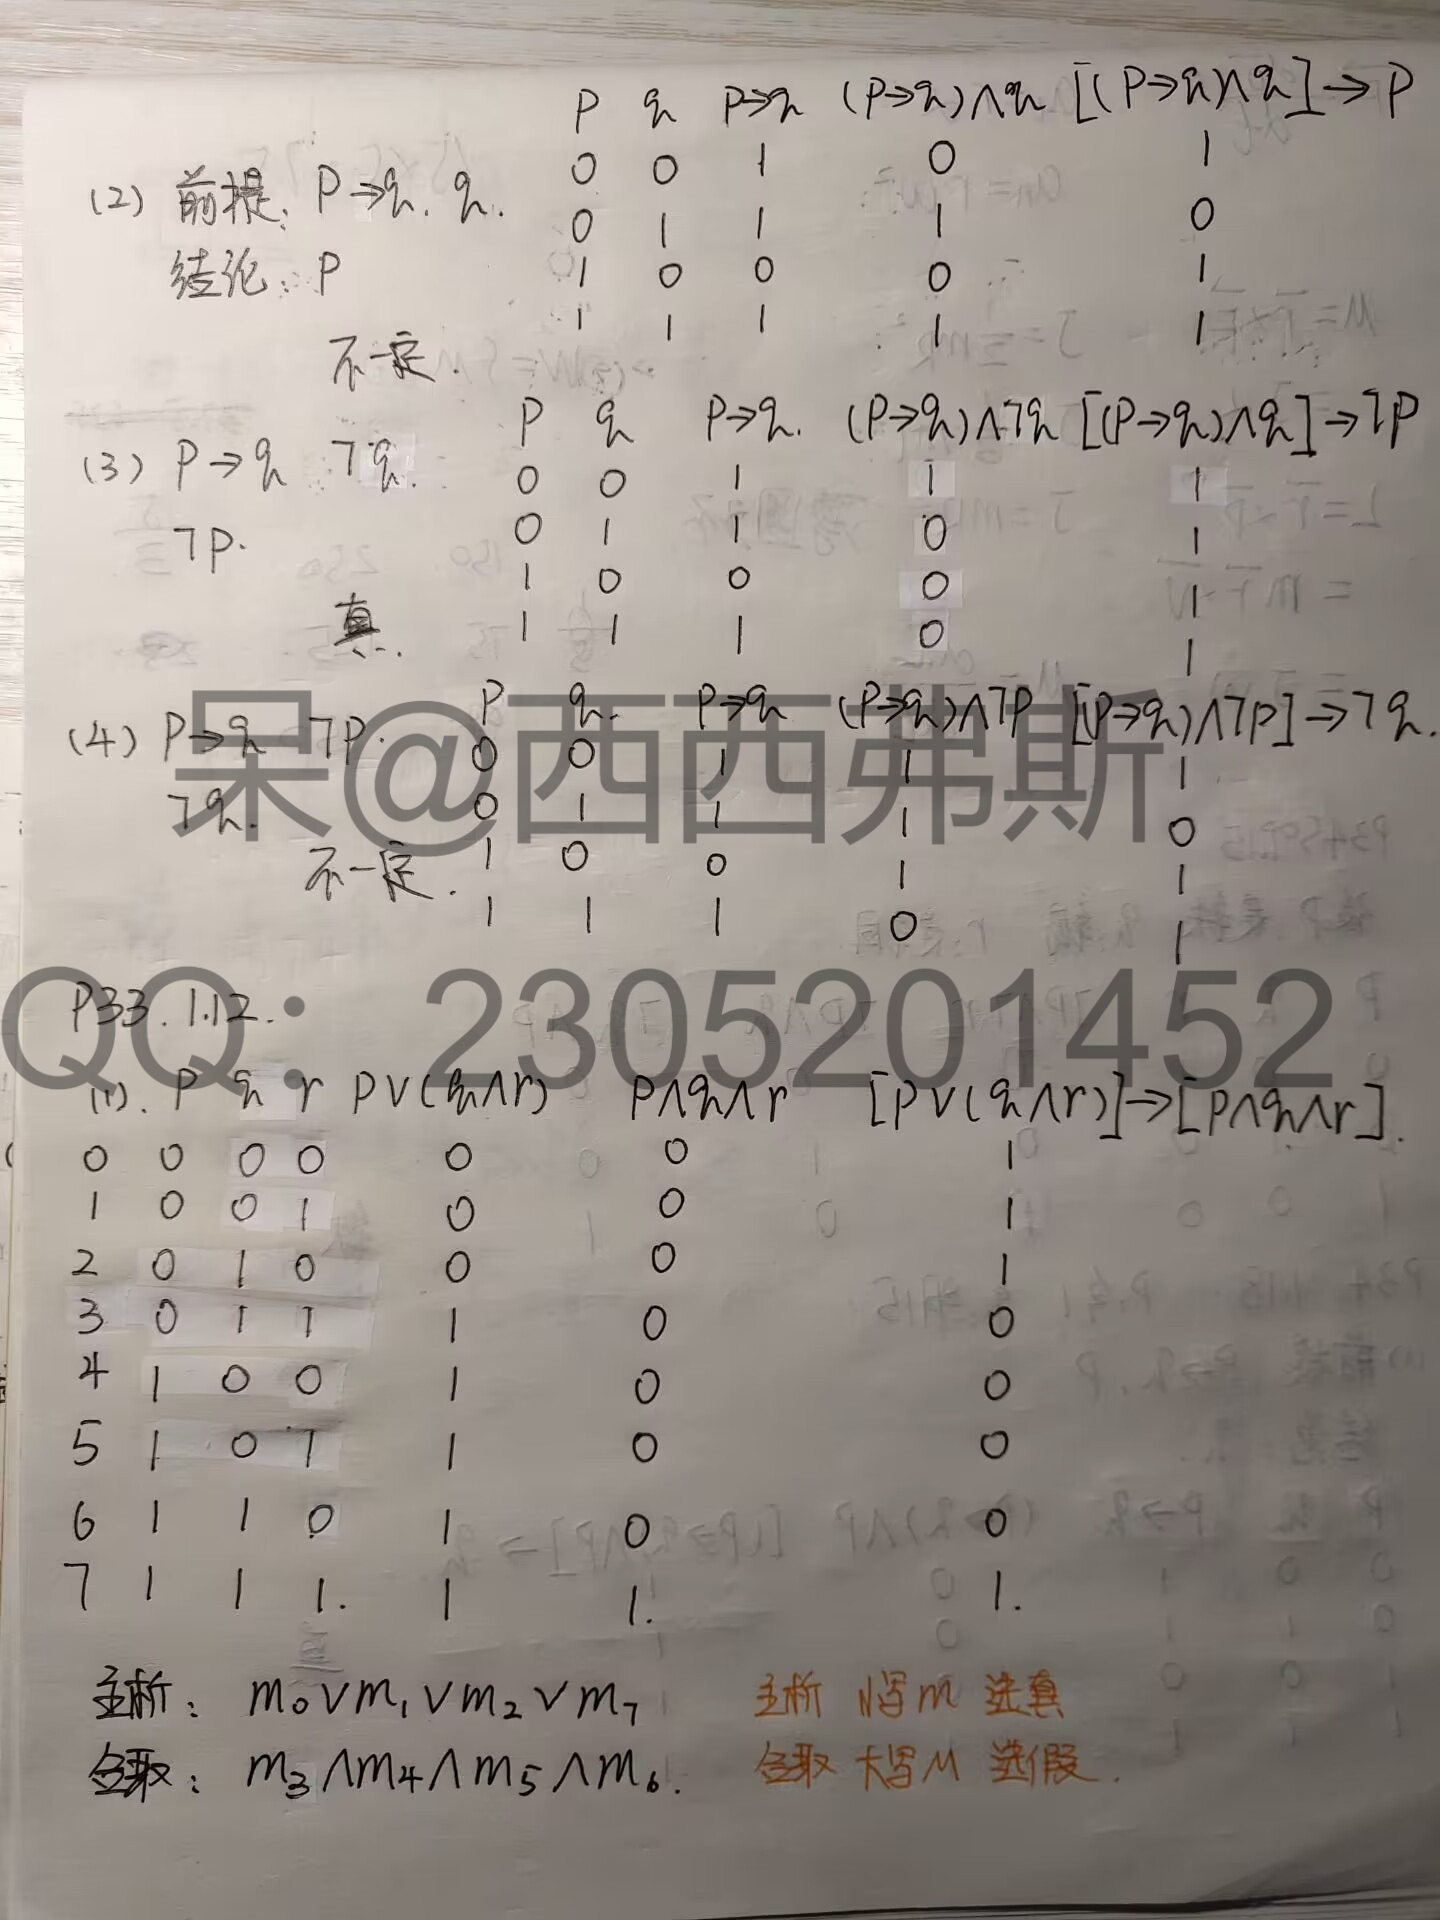 p q p→q (p→q)∧q [(p→q)∧q]→p
0 0 1 0 1
(2) 前提: p→q. q.
0 1 1 1 0
结论: p 1 0 0 0 1
1 1 1 1 1
不一定.
p q p→q. (p→q)∧¬q [(p→q)∧q]→¬p
(3) p→q ¬q.
0 0 1 1 1
¬p. 0 1 1 0 1
1 0 0 0 1
真. 1 1 1 0 1
p q. p→q (p→q)∧¬p [(p→q)∧¬p]→¬q.
(4) p→q ¬p. 0 0 1 1 1
¬q. 0 1 1 1 0
不一定. 1 0 0 1 1
1 1 1 0 1
呆@西西弗斯
QQ: 2305201452
P33. 1.12.
(1). p q r p∨(q∧r) p∧q∧r [p∨(q∧r)]→[p∧q∧r].
0 0 0 0 0 0 1
1 0 0 1 0 0 1
2 0 1 0 0 0 1
3 0 1 1 1 0 0
4 1 0 0 1 0 0
5 1 0 1 1 0 0
6 1 1 0 1 0 0
7 1 1 1. 1 1. 1.
主析: m₀∨m₁∨m₂∨m₇ 主析 小写m 选真
合取: m₃∧m₄∧m₅∧m₆. 合取 大写M 选假.